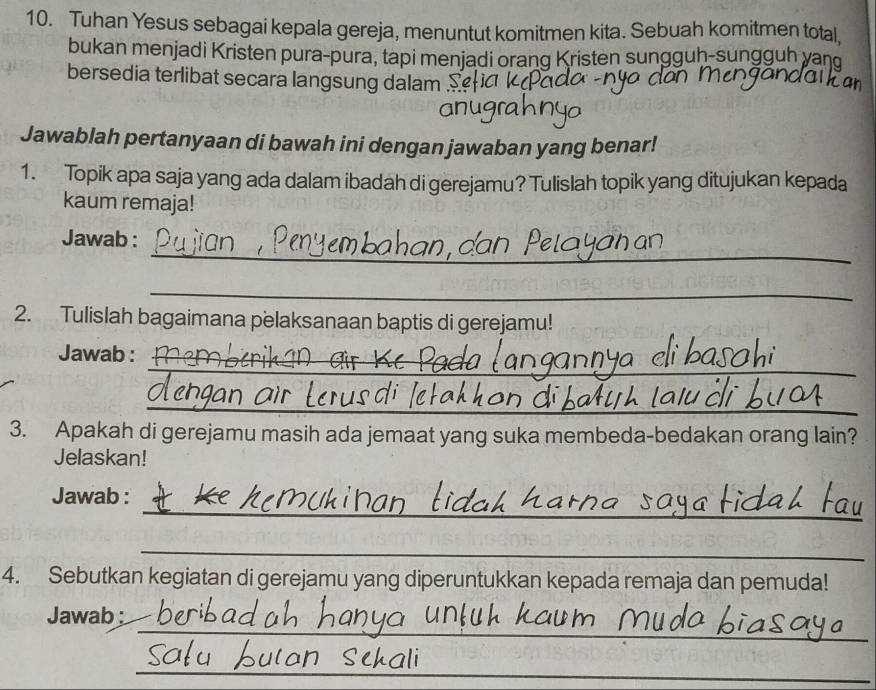 10. Tuhan Yesus sebagai kepala gereja, menuntut komitmen kita. Sebuah komitmen total,
bukan menjadi Kristen pura-pura, tapi menjadi orang Kristen sungguh-sungguh yang
bersedia terlibat secara langsung dalam setia kepada-nya dan mengandaikan
anugrahnya
Jawablah pertanyaan di bawah ini dengan jawaban yang benar!
1. Topik apa saja yang ada dalam ibadah di gerejamu? Tulislah topik yang ditujukan kepada
kaum remaja!
Jawab : Pujian, Penyembahan, dan Pelayanan
2. Tulislah bagaimana pelaksanaan baptis di gerejamu!
Jawab : memberikan air ke Pada tangannya dibasahi
dengan air terus di letakkan di batuk lalu di buat
3. Apakah di gerejamu masih ada jemaat yang suka membeda-bedakan orang lain?
Jelaskan!
Jawab : kemukinan tidak karna saya tidak tau
4. Sebutkan kegiatan di gerejamu yang diperuntukkan kepada remaja dan pemuda!
Jawab : beribadah hanya untuk kaum muda biasaya
satu bulan sekali